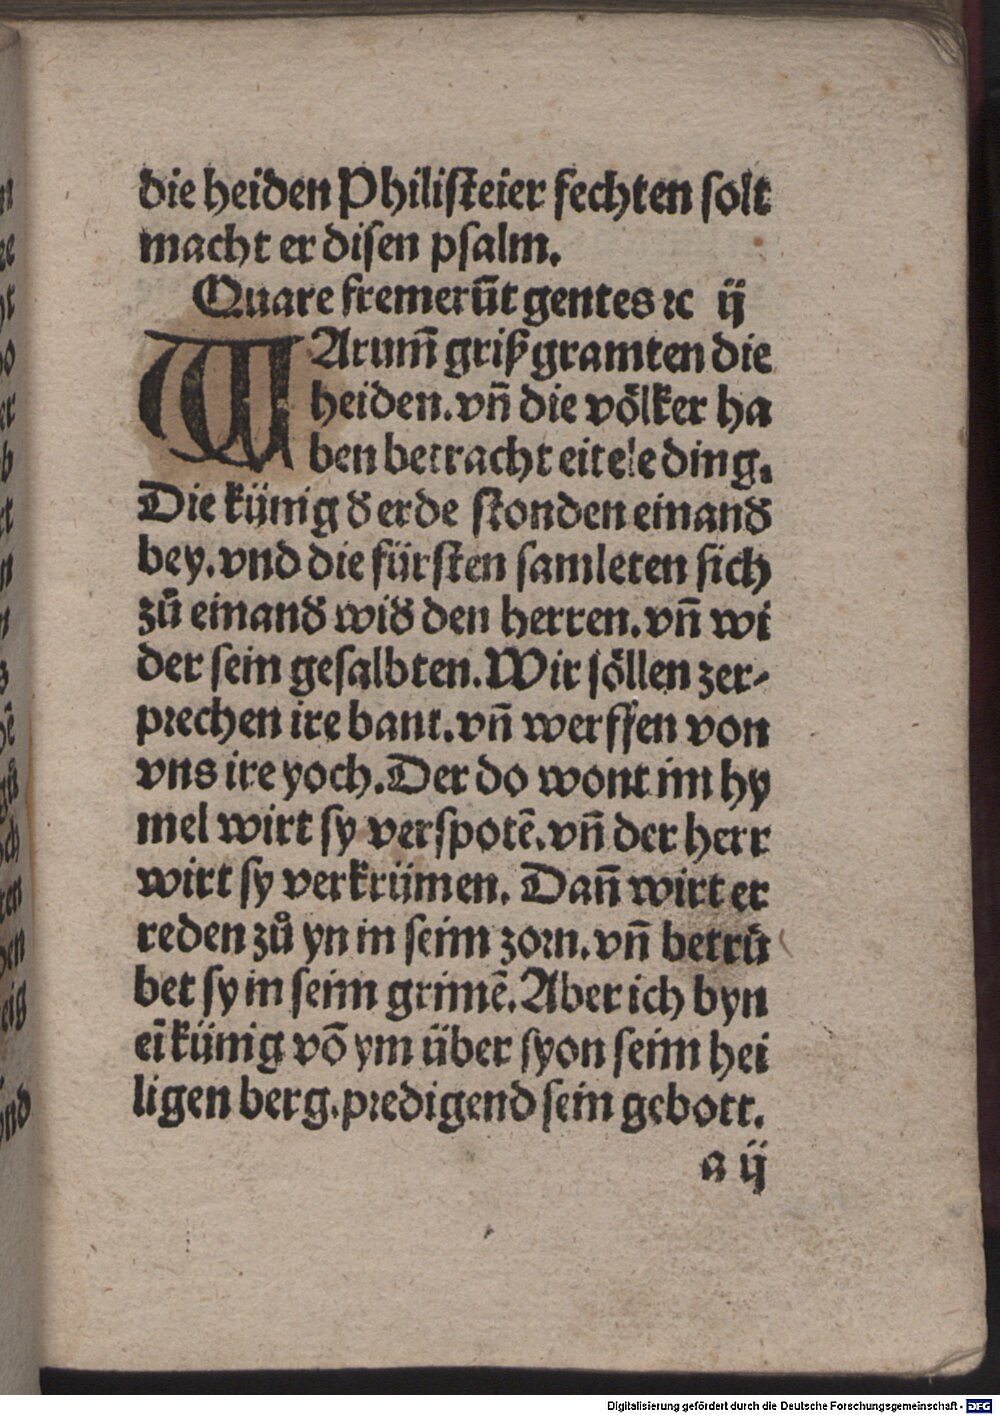 die heiden Philisteier fechten solt
macht er disen psalm.
Quare fremerūt gentes ⁊c ij
WArum̄ griß gramten die
heiden. vn̄ die völker ha
ben betracht eitele ding.
Die künig đ erde stonden einanđ
bey. vnd die fürsten samleten sich
zů einanđ wiđ den herren. vn̄ wi
der sein gesalbten. Wir söllen zer-
prechen ire bant. vn̄ werffen von
vns ire yoch. Der do wont im hy
mel wirt sy verspotē. vn̄ der herr
wirt sy verkrümen. Dan̄ wirt er
reden zů yn in seim zorn. vn̄ betrü
bet sy in seim grimē. Aber ich byn
eī künig vō ym über syon seim hei
ligen berg. predigend sein gebott.
a ij
Digitalisierung gefördert durch die Deutsche Forschungsgemeinschaft - DFG